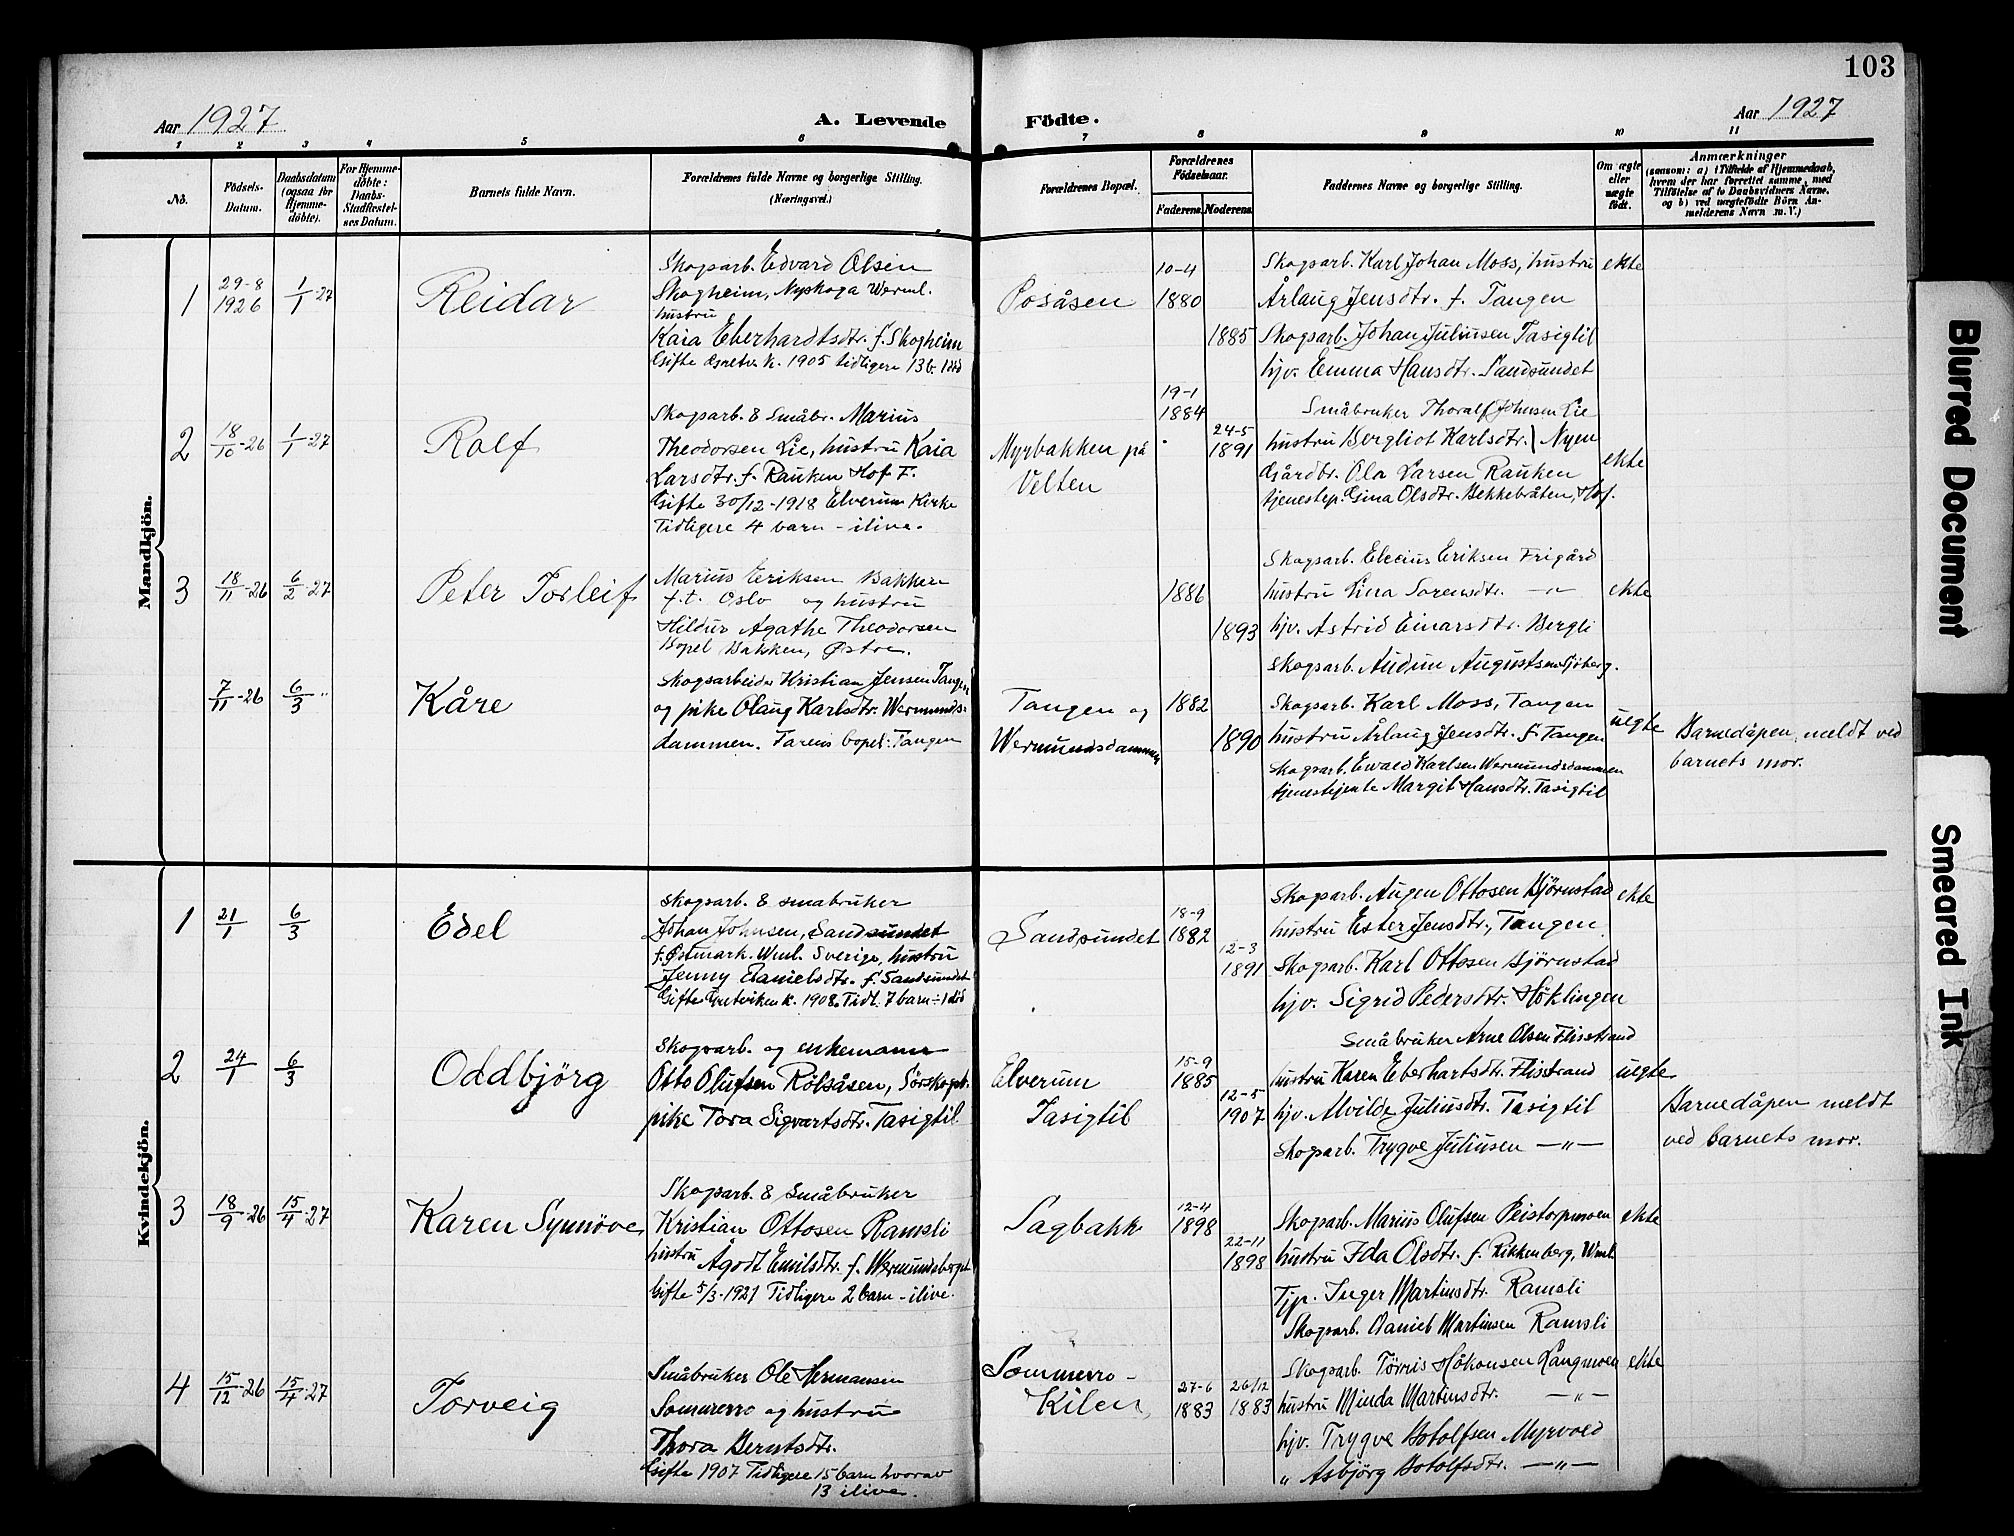 103
Aar 1927
A. Levende
Födte.
Aar 1927
1 2 3 4 5 6 7 8 9 10 11
No.
Födsels-
Datum.
Daabsdatum
(ogsaa for
Hjemme-
döbte).
For Hjemme-
döbte:
Daabs-
Stadfæstel-
ses Datum.
Barnets fulde Navn.
Forældrenes fulde Navne og borgerlige Stilling.
(Næringsvei.)
Forældrenes Bopæl.
Forældrenes
Födselsaar.
Faderens.
Moderens.
Faddernes Navne og borgerlige Stilling.
Om ægte
eller
uægte
født.
Anmærkninger
(saasom: a) i Tilfælde af Hjemmedaab,
hvem der har forrettet samme, med
Tilföielse af to Daabsvidners Navne,
og b) ved uægtefödte Börn An-
melderens Navn m. V.)
Mandkjön.
1
29-8
1926
1/1-27
Reidar
Skogsarb. Edvard Olsen
Skogheim, Nyskoga Werml.
hustru
Kaia Eberhardtsdtr. f. Skogheim
Gifte k. 1905 tidligere 13 b. 1 død
Posåsen
10-4
1880
1885
Skogsarb. Karl Johan Moss, hustru
Årlaug Jensdtr. f. Tangen
Skogsarb. Johan Juliussen Tasigtil
hjv. Emma Hansdtr. Sandsundet
ekte
2
18/10-26
1/1-27
Rolf
Skogsarb. & Småbr. Marius
Theodorsen Lie, hustru Kaia
Larsdtr. f. Rauken Hof F.
Gifte 30/12-1918 Elverum Kirke
Tidligere 4 barn - ilive.
Myrbakken på
Velten
19-1
1884
24-5
1891
Småbruker Thoralf Johnsen Lie
hustru Bergliot Karlsdtr. Nyen
Gårdbr. Ola Larsen Rauken
tjenestep. Gina Olsdtr. Bekkebråten, Hof.
ekte
3
18/11-26
6/2-27
Peter Torleif
Marius Eriksen Bakken
f.t. Oslo og hustru
Hildur Agathe Theodorsen
Bopel Bakken, Østre.
1886
1893
Skogsarb. Elecius Eriksen Frigård
hustru Lina Sorensdtr. —"—
hjv. Astrid Einarsdtr. Bergli
Skogsarb. Audun Augustsen Sjöberg.
ekte
7/11-26
6/3 "
Kåre
Skogsarbeider Kristian Jensen Tangen
og pike Olaug Karlsdtr. Wermunds-
dammen. Farens bopel: Tangen
Tangen og
Wermundsdammen
1882
1890
Skogsarb. Karl Moss, Tangen
hustru Årlaug Jensdtr. f. Tangen
Skogsarb. Ewald Karlsen Wermundsdammen
tjenestejente Margit Hansdtr. Tasigtil
uegte
Barnedåpen meldt ved
barnets mor.
Kvindekjön.
1
21/1
6/3
Edel
Skogsarb. & småbruker
Johan Johnsen, Sandsundet
f. Östmark. Wml. Sverige, hustru
Jenny Danielsdtr. f. Sandsundet
Gifte k. 1908. Tidl. 7 barn ÷ 1 død
Sandsundet
18-9
1882
12-3
1891
Skogsarb. Augen Ottosen Björnstad
hustru Ester Jensdtr., Tangen
Skogsarb. Karl Ottosen Björnstad
hjv. Sigrid Pedersdtr. Höklingen
ekte
2
24/1
6/3
Oddbjörg
Skogsarb. og enkemann
Otto Olufsen Rölsåsen, Sörskogb.
pike Tora Sigvartsdtr. Tasigtil
Elverum
Tasigtil
15-9
1885
12-5
1907
Småbruker Arne Olsen Flisstrand
hustru Karen Eberhartsdtr. Flisstrand
hjv. Alvilde Juliusdtr. Tasigtil
Skogsarb. Trygve Juliusen —"—
uegte
Barnedåpen meldt
ved barnets mor.
3
18/9-26
15/4-27
Karen Synnöve
Skogsarb. & Småbruker
Kristian Ottosen Ramsli
hustru Ågodt Emilsdtr. f. Wermundsberget
Gifte 5/3-1921 Tidligere 2 barn - ilive.
Sagbakk
12-4
1898
22-11
1898
Skogsarb. Marius Olufsen Peistorpmoen
hustru Ida Olsdtr. f. Rikkenberg, Wml.
Tjp. Inger Martinsdtr. Ramsli
Skogsarb. Daniel Martinsen Ramsli
ekte
4
15/12-26
15/4-27
Torveig
Småbruker Ole Hermansen
Sommerro og hustru
Thora Berntsdtr.
Gifte 1907 Tidligere 15 barn hvorav
13 ilive.
Sommerro-
Kilen
27-6
1883
26/12
1883
Skogsarb. Törris Håkonsen Langmoen
hustru Minda Martinsdtr. —"—
hjv. Trygve Botolfsen Myrvold
" Asbjörg Botolfsdtr. —"—
ekte
Blurred Document
Smeared Ink